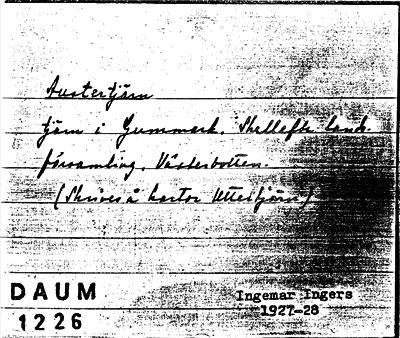 Austertjärn
tjärn i Gummark. Skellefte lands-
församling. Västerbotten.
(Skrives å kartor Uttertjärn)
DAUM
1226
Ingemar Ingers
1927-28